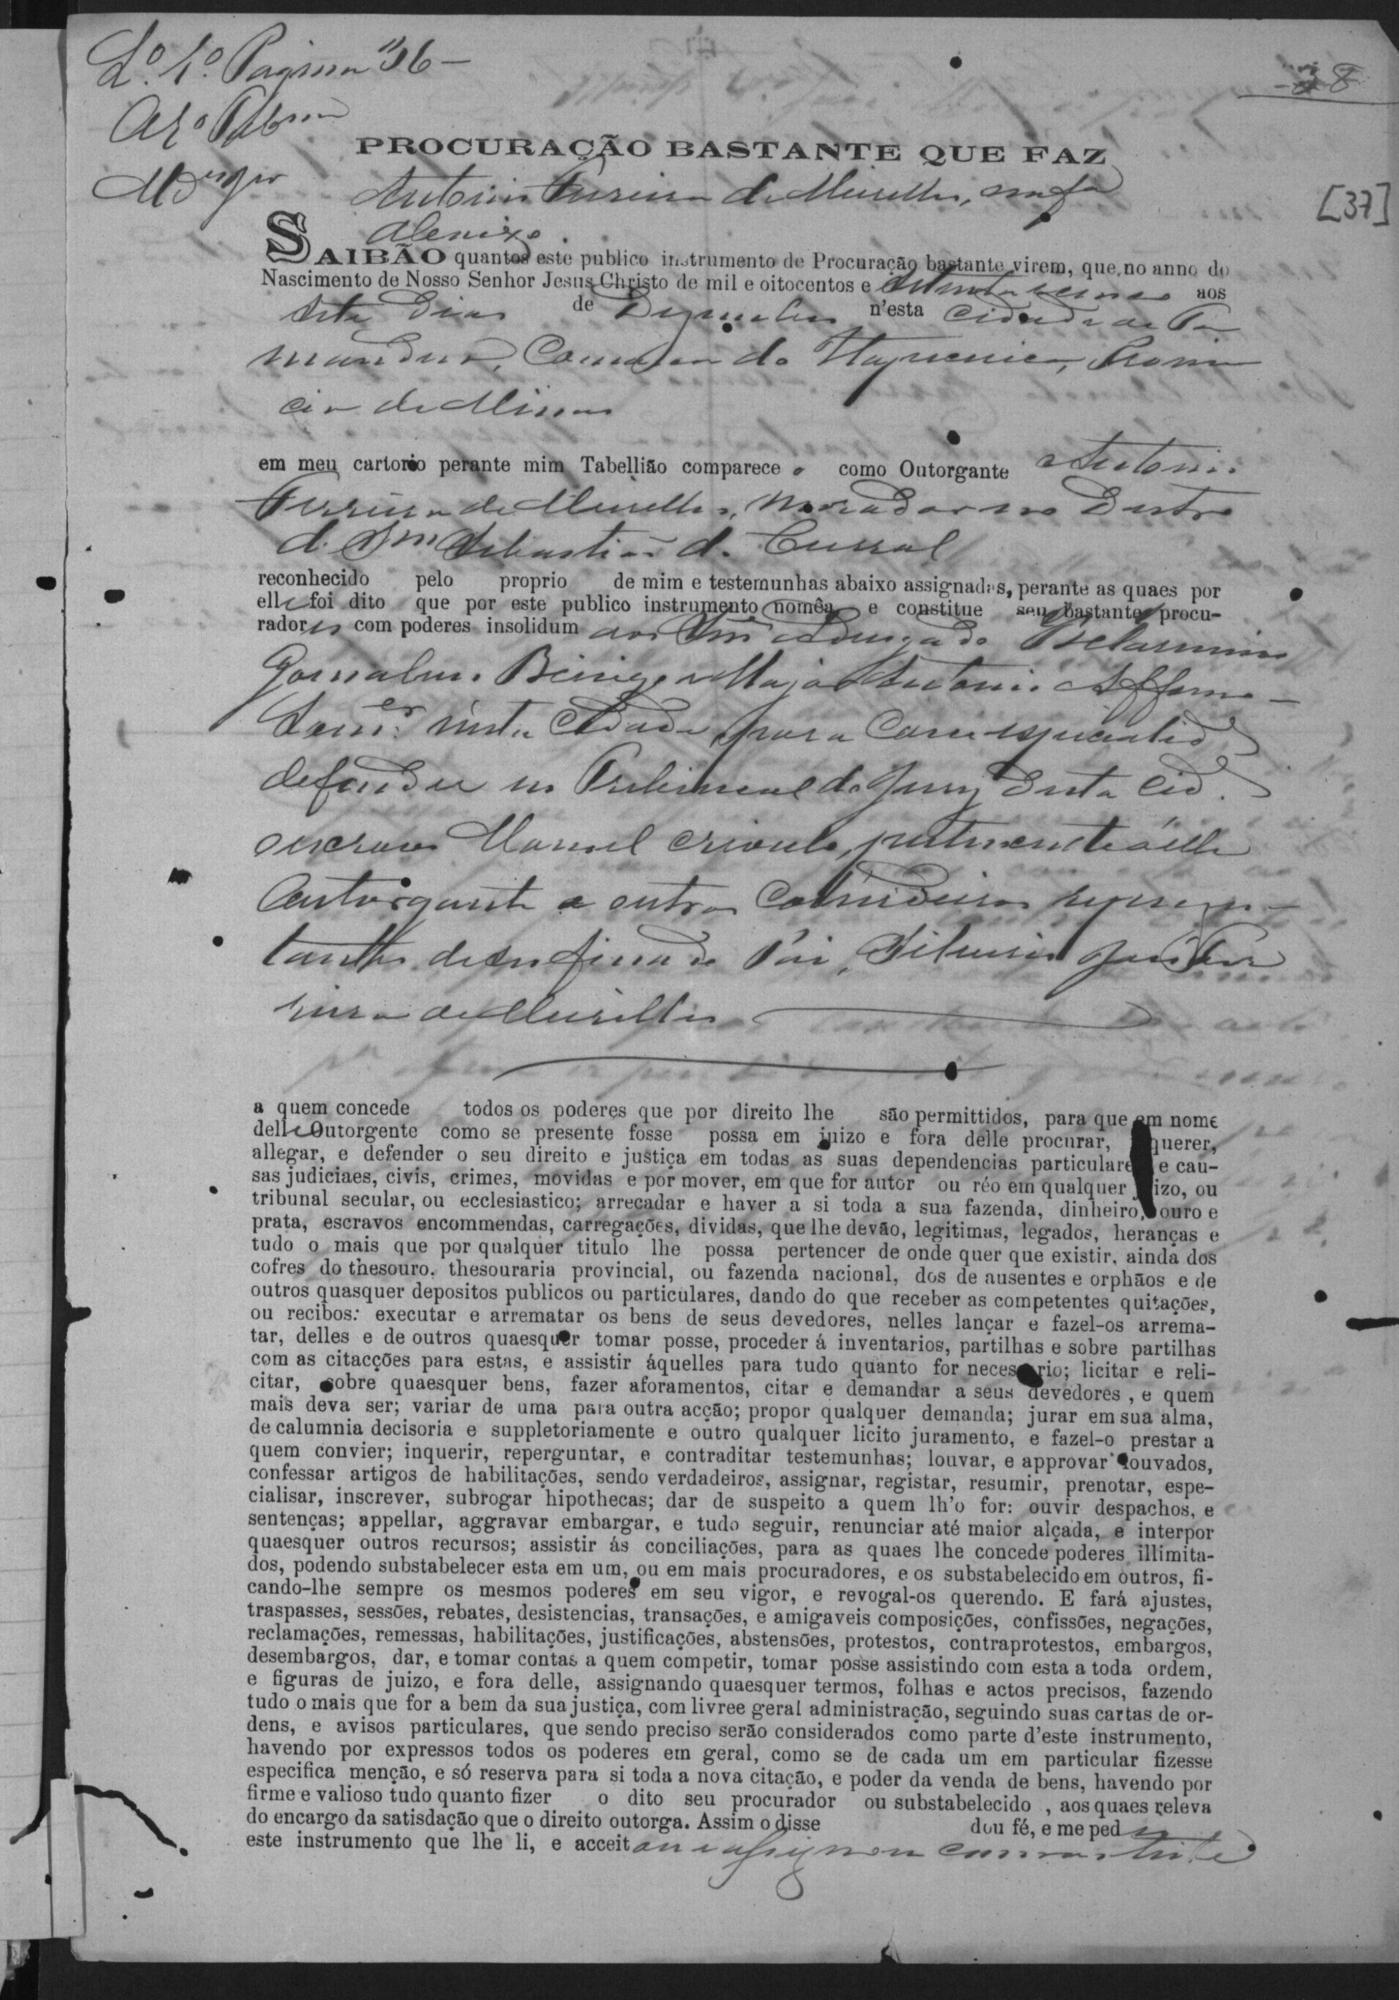 Lº 1º Pagina 36
38
PROCURAÇÃO BASTANTE QUE FAZ
Antonio Ferreira de Meirelles, na fa
abaixo
[37]
SAIBÃO quantos este publico instrumento de Procuração bastante virem, que, no anno do
Nascimento de Nosso Senhor Jesus Christo de mil e oitocentos e setenta aos
sete dias de Dezembro n'esta Cidade de Ta
manduá, Comarca do Itapecerica, Provin
cia de Minas
em meu cartorio perante mim Tabellião comparece o como Outorgante Antonio
Ferreira de Meirelles, morador no Destro
de Sm Sebastião do Curral
reconhecido pelo proprio de mim e testemunhas abaixo assignadas, perante as quaes por
elle foi dito que por este publico instrumento nomêa e constitue seus bastantes procu-
radores com poderes insolidum aos Advogado Belarmino
Gonsalves e Major Antonio Affonso
nesta Cidade, para com especialid
defender no Tribunal do Jury desta Cid.
o escravo Manoel crioulo, pertencente á elle
Outorgante e outros Coherdeiros represen-
tantes de seu finado Pai, Silverio José Fer
reira de Meirelles
a quem concede todos os poderes que por direito lhe são permittidos, para que em nome
delle Outorgente como se presente fosse possa em juizo e fora delle procurar, querer,
allegar, e defender o seu direito e justiça em todas as suas dependencias particulares e cau-
sas judiciaes, civis, crimes, movidas e por mover, em que for autor ou réo em qualquer juizo, ou
tribunal secular, ou ecclesiastico; arrecadar e haver a si toda a sua fazenda, dinheiro, ouro e
prata, escravos encommendas, carregações, dividas, que lhe devão, legitimas, legados, heranças e
tudo o mais que por qualquer titulo lhe possa pertencer de onde quer que existir, ainda dos
cofres do thesouro. thesouraria provincial, ou fazenda nacional, dos de ausentes e orphãos e de
outros quasquer depositos publicos ou particulares, dando do que receber as competentes quitações,
ou recibos: executar e arrematar os bens de seus devedores, nelles lançar e fazel-os arrema-
tar, delles e de outros quaesquer tomar posse, proceder á inventarios, partilhas e sobre partilhas
com as citacções para estas, e assistir áquelles para tudo quanto for necessario; licitar e reli-
citar, sobre quaesquer bens, fazer aforamentos, citar e demandar a seus devedores , e quem
mais deva ser; variar de uma para outra acção; propor qualquer demanda; jurar em sua alma,
de calumnia decisoria e suppletoriamente e outro qualquer licito juramento, e fazel-o prestar a
quem convier; inquerir, reperguntar, e contraditar testemunhas; louvar, e approvar louvados,
confessar artigos de habilitações, sendo verdadeiros, assignar, registar, resumir, prenotar, espe-
cialisar, inscrever, subrogar hipothecas; dar de suspeito a quem lh'o for: ouvir despachos, e
sentenças; appellar, aggravar embargar, e tudo seguir, renunciar até maior alçada, e interpor
quaesquer outros recursos; assistir ás conciliações, para as quaes lhe concede poderes illimita-
dos, podendo substabelecer esta em um, ou em mais procuradores, e os substabelecido em outros, fi-
cando-lhe sempre os mesmos poderes em seu vigor, e revogal-os querendo. E fará ajustes,
traspasses, sessões, rebates, desistencias, transações, e amigaveis composições, confissões, negações,
reclamações, remessas, habilitações, justificações, abstensões, protestos, contraprotestos, embargos,
desembargos, dar, e tomar contas a quem competir, tomar posse assistindo com esta a toda ordem,
e figuras de juizo, e fora delle, assignando quaesquer termos, folhas e actos precisos, fazendo
tudo o mais que for a bem da sua justiça, com livre e geral administração, seguindo suas cartas de or-
dens, e avisos particulares, que sendo preciso serão considerados como parte d'este instrumento,
havendo por expressos todos os poderes em geral, como se de cada um em particular fizesse
especifica menção, e só reserva para si toda a nova citação, e poder da venda de bens, havendo por
firme e valioso tudo quanto fizer o dito seu procurador ou substabelecido , aos quaes releva
do encargo da satisdação que o direito outorga. Assim o disse dou fé, e me pediu
este instrumento que lhe li, e acceitou e assignou com as